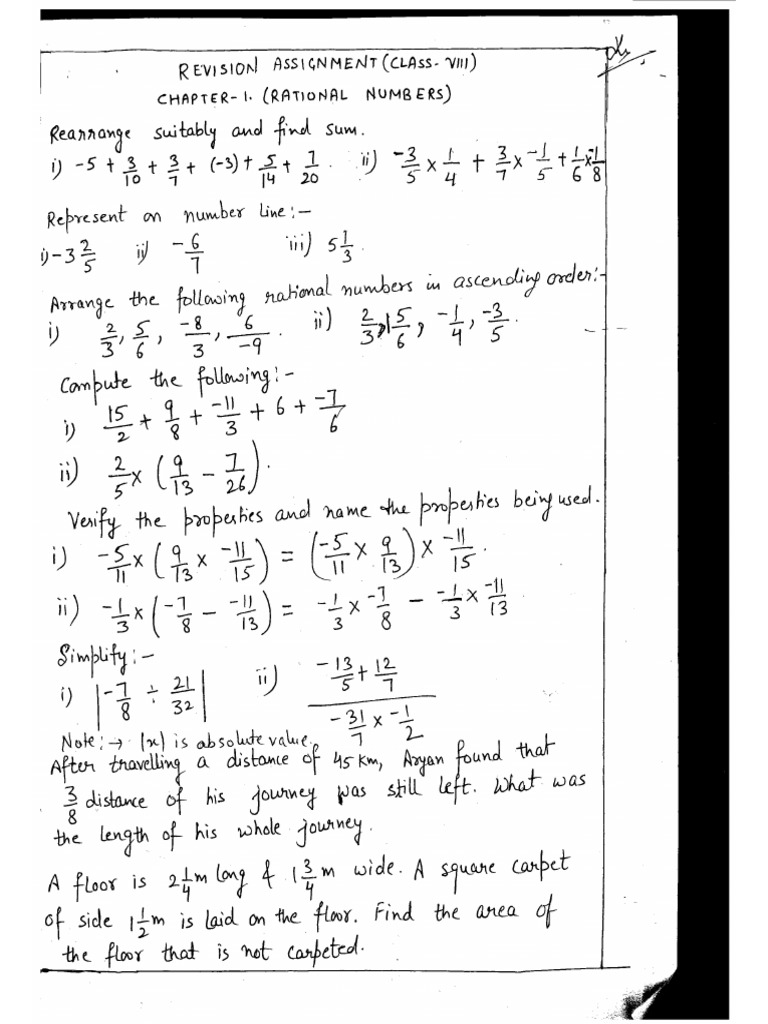 REVISION ASSIGNMENT (CLASS-VIII)
CHAPTER-1. (RATIONAL NUMBERS)
Rearrange suitably and find sum.
i) -5 + 3/10 + 3/7 + (-3) + 5/14 + 7/20. ii) -3/5 × 1/4 + 3/7 × -1/5 + 1/6 × -1/8
Represent on number line:-
i) -3 2/5 ii) -6/7 iii) 5 1/3.
Arrange the following rational numbers in ascending order:-
i) 2/3, 5/6, -8/3, 6/-9. ii) 2/3, 5/6, -1/4, -3/5.
Compute the following:-
i) 15/2 + 9/8 + -11/3 + 6 + -7/6
ii) 2/5 × (9/13 - 7/26).
Verify the properties and name the properties being used.
i) -5/11 × (9/13 × -11/15) = (-5/11 × 9/13) × -11/15.
ii) -1/3 × (-7/8 - -11/13) = -1/3 × -7/8 - -1/3 × -11/13
Simplify:-
i) |-7/8 ÷ 21/32| ii) (-13/5 + 12/7)/(-31/7 × -1/2)
Note:→ |x| is absolute value.
After travelling a distance of 45 km, Aryan found that
3/8 distance of his journey was still left. What was
the length of his whole journey.
A floor is 2 1/4 m long & 1 3/4 m wide. A square carpet
of side 1 1/2 m is laid on the floor. Find the area of
the floor that is not carpeted.